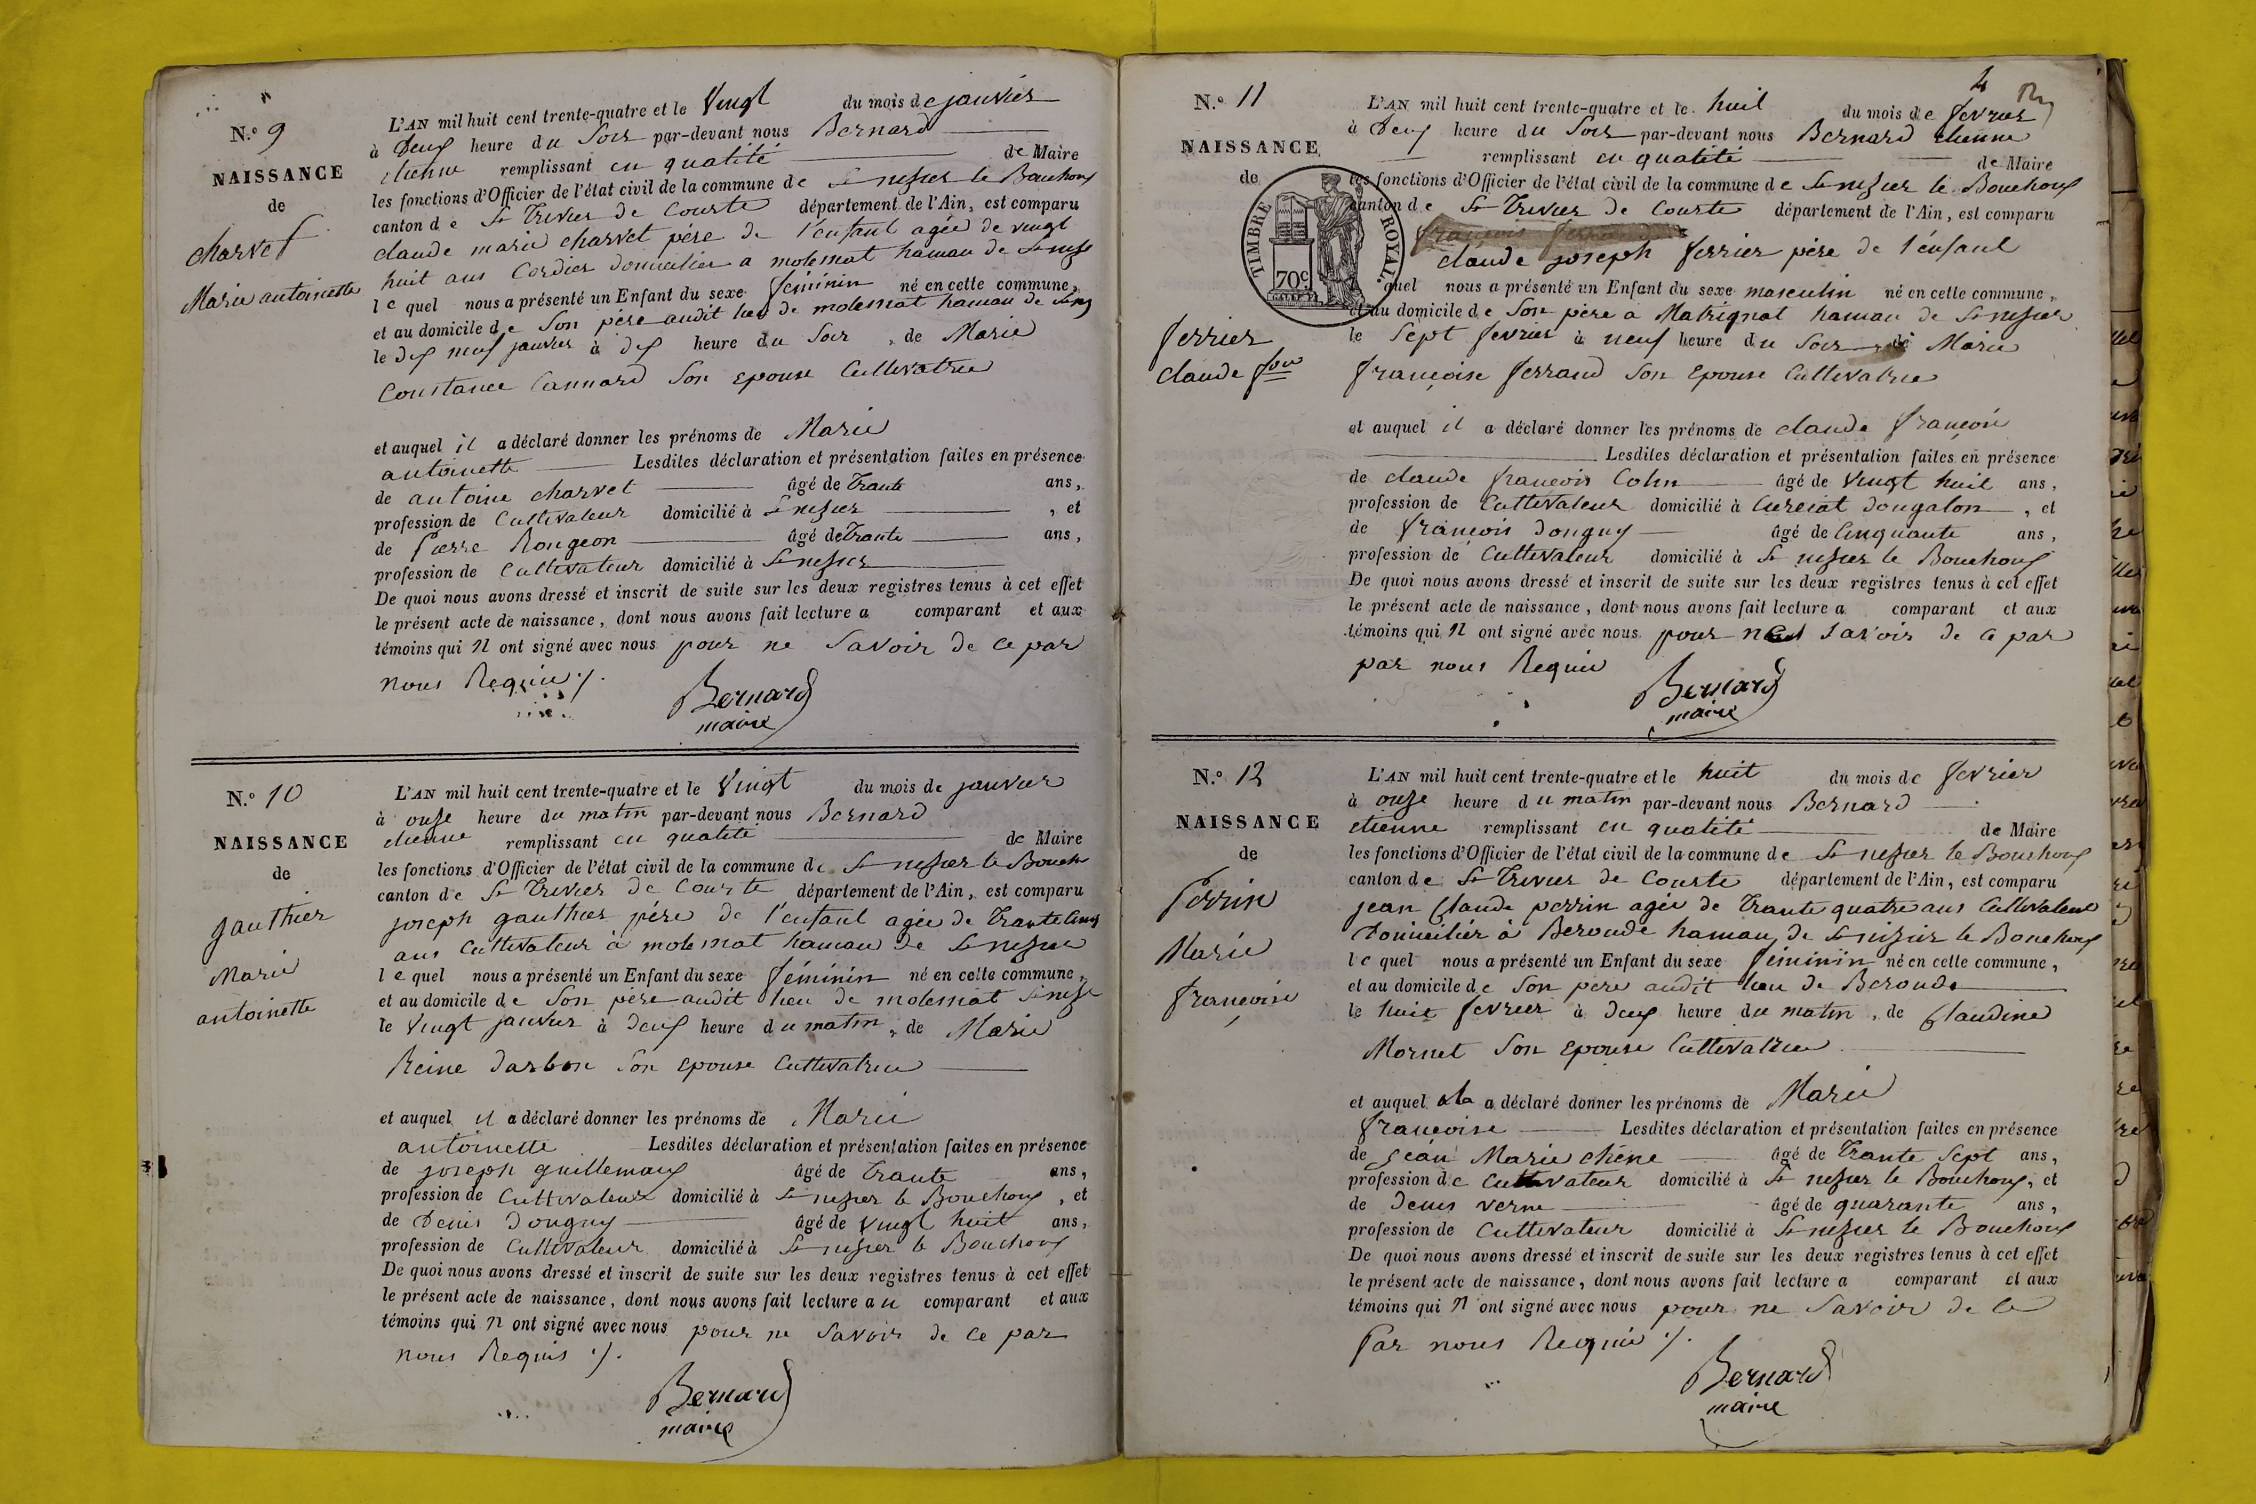 N.º 9
NAISSANCE
de
charvet
Marie antoinette
L'AN mil huit cent trente-quatre et le Vingt du mois de janvier
à Deux heure du Soir par-devant nous Bernard
etienne remplissant en qualité de Maire
les fonctions d'Officier de l'état civil de la commune de St nizier le Bouchoux
canton de St Trivier de Courte département de l'Ain, est comparu
claude marie charvet père de l'enfant agée de vingt
huit ans Cordier domicilier a molernat hamau de St nizi
le quel nous a présenté un Enfant du sexe féminin né en cette commune,
et au domicile de Son père audit lieu de molernat hamau de St niz
le dix neuf janvier à dix heure du Soir, de Marie
Constance Cannard Son epouse Cultivatrice
et auquel il a déclaré donner les prénoms de Marie
antoinette Lesdites déclaration et présentation faites en présence
de antoine charvet âgé de trante ans,
profession de Cultivateur domicilié à St nizier, et
de Pierre Rongeon âgé de Trante ans,
profession de Cultivateur domicilié à St nizier
De quoi nous avons dressé et inscrit de suite sur les deux registres tenus à cet effet
le présent acte de naissance, dont nous avons fait lecture a comparant et aux
témoins qui N ont signé avec nous pour ne Savoir de ce par
nous Requie ./.
Bernard
maire
N.º 10
NAISSANCE
de
gauthier
Marie
antoinette
L'AN mil huit cent trente-quatre et le Vingt du mois de janvier
à onze heure du matin par-devant nous Bernard
etienne remplissant en qualité de Maire
les fonctions d'Officier de l'état civil de la commune de St nizier le Bouch
canton de St Trivier de Courte département de l'Ain, est comparu
joseph gauthier père de l'enfant agée de Trante Cinq
ans Cultivateur à molernat hamau de St nizier
le quel nous a présenté un Enfant du sexe féminin né en cette commune,
et au domicile de Son père audit lieu de molernat St nizi
le Vingt janvier à deux heure du matin, de Marie
Reine darbon Son epouse Cultivatrice
et auquel il a déclaré donner les prénoms de Marie
antoinette Lesdites déclaration et présentation faites en présence
de joseph guillemaux âgé de Trante ans,
profession de Cultivateur domicilié à St nizier le Bouchoux, et
de Denis Donguy âgé de vingt huit ans,
profession de Cultivateur domicilié à St nizier le Bouchoux
De quoi nous avons dressé et inscrit de suite sur les deux registres tenus à cet effet
le présent acte de naissance, dont nous avons fait lecture au comparant et aux
témoins qui N ont signé avec nous pour ne Savoir de ce par
nous Requis ./.
Bernard
maire
4
N.º 11
NAISSANCE
de
TIMBRE ROYAL
70c
ferrier
claude fois
L'AN mil huit cent trente-quatre et le huit du mois de fevrier
à Deux heure du Soir par-devant nous Bernard etienne
remplissant en qualité de Maire
les fonctions d'Officier de l'état civil de la commune de St nizier le Bouchoux
canton de St Trivier de Courte département de l'Ain, est comparu
claude joseph ferrier père de l'enfant
quel nous a présenté un Enfant du sexe masculin né en cette commune,
et au domicile de Son père a Matrignat hamau de St nizier
le Sept fevrier à neuf heure du Soir, de Marie
françoise ferrand Son Epouse Cultivatrice
et auquel il a déclaré donner les prénoms de claude françois
Lesdites déclaration et présentation faites en présence
de claude françois Colin âgé de vingt huit ans,
profession de Cultivateur domicilié à Curciat dongalon, et
de françois donguy âgé de Cinquante ans,
profession de Cultivateur domicilié à St nizier le Bouchoux
De quoi nous avons dressé et inscrit de suite sur les deux registres tenus à cet effet
le présent acte de naissance, dont nous avons fait lecture a comparant et aux
témoins qui N ont signé avec nous pour ne Savoir de ce par
par nous Requie
Bernard
maire
N.º 12
NAISSANCE
de
Perrin
Marie
françoise
L'AN mil huit cent trente-quatre et le huit du mois de fevrier
à onze heure du matin par-devant nous Bernard
etienne remplissant en qualité de Maire
les fonctions d'Officier de l'état civil de la commune de St nizier le Bouchoux
canton de St Trivier de Courte département de l'Ain, est comparu
jean Claude perrin agée de Trante quatre ans Cultivateur
Domicilier à Beroude hamau de St nizier le Bouchoux
le quel nous a présenté un Enfant du sexe féminin né en cette commune,
et au domicile de Son pere audit lieu de Beroude
le huit fevrier à deux heure du matin, de Claudine
Mornet Son Epouse Cultivatrice
et auquel a déclaré donner les prénoms de Marie
françoise Lesdites déclaration et présentation faites en présence
de jean Marie chêne âgé de Trante Sept ans,
profession de Cultivateur domicilié à St nizier le Bouchoux, et
de Denis verne âgé de quarante ans,
profession de Cultivateur domicilié à St nizier le Bouchoux
De quoi nous avons dressé et inscrit de suite sur les deux registres tenus à cet effet
le présent acte de naissance, dont nous avons fait lecture a comparant et aux
témoins qui N ont signé avec nous pour ne Savoir de ce
Par nous Requie ./.
Bernard
maire